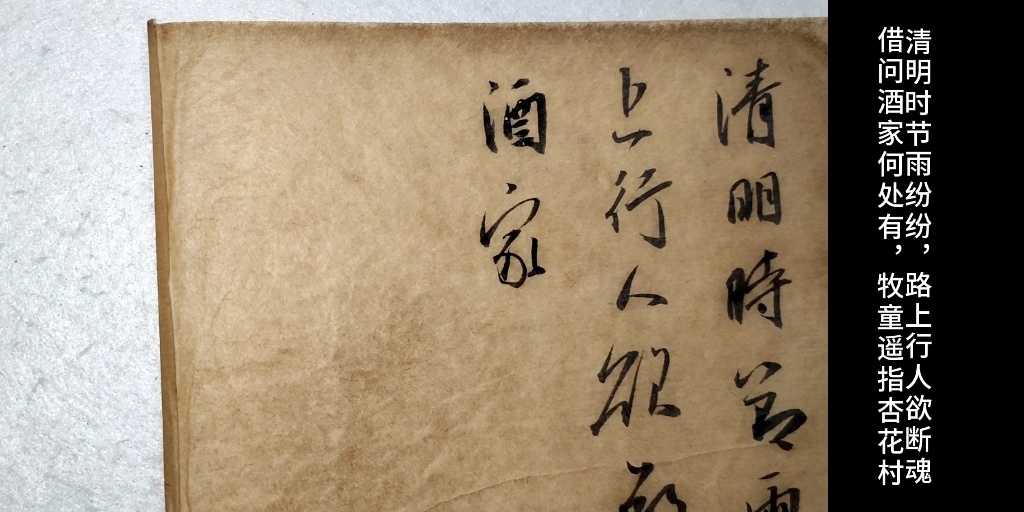 清明时节雨纷纷，路上行人欲断魂
借问酒家何处有，牧童遥指杏花村
清明時節雨
上行人欲断
酒家